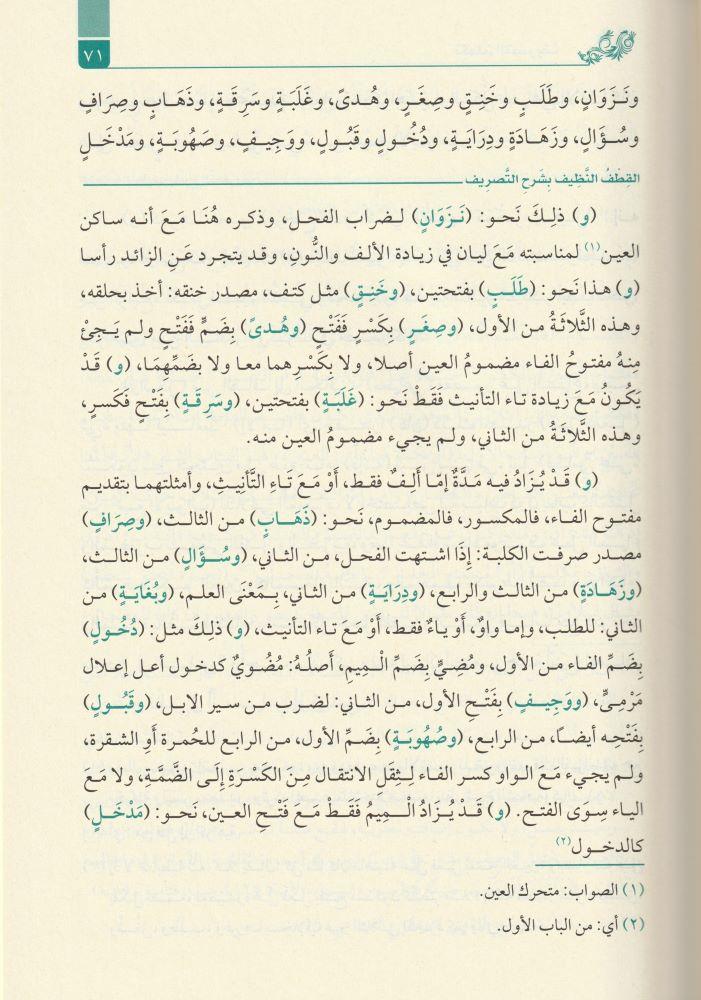 ٧١
ونَـزَوَانٍ، وطَلَبٍ وخَنِقٍ وصِغَرٍ، وهُدىً، وغَلَبَةٍ وسَرِقَةٍ، وذَهَابٍ وصِرَافٍ
وسُؤَالٍ، وزَهَادَةٍ ودِرَايَةٍ، ودُخُولٍ وقَبُولٍ، ووَجِيفٍ، وصَهُوبَةٍ، ومَدْخَلٍ
القِطْفُ النَّظِيف بِشَرح التَّصرِيف
(و) ذلِكَ نَحو: (نَـزَوَانٍ) لضراب الفحل، وذكره هُنَا مَعَ أنه ساكن
العين(١) لمناسبته مَعَ ليان في زيادة الألف والنُّونِ، وقد يتجرد عَنِ الزائد رأسا
(و) هذا نَحو: (طَلَبٍ) بفتحتين، (وخَنِقٍ) مثل كتف، مصدر خنقه: أخذ بحلقه،
وهذه الثَّلاثَةُ من الأول، (وصِغَرٍ) بكَسْرٍ فَفَتْحٍ (وهُدىً) بِضَمٍّ فَفَتْحٍ ولم يَجِئْ
مِنهُ مفتوحُ الفاء مضمومُ العين أصلا، ولا بِكَسْرِهما معا ولا بضَمِّهِمَا، (و) قَدْ
يَكُونُ مَعَ زيادة تاء التأنيث فَقَطْ نَحو: (غَلَبَةٍ) بفتحتين، (وسَرِقَةٍ) بِفَتْحٍ فَكَسرٍ،
وهذه الثَّلاثَةُ من الثاني، ولم يجيء مضمومُ العين منه.
(و) قَدْ يُزَادُ فيه مَدَّةٌ إمّا أَلِفٌ فقط، أَوْ مَعَ تَاءِ التَّأنِيثِ، وأمثلتهما بتقديم
مفتوح الفاء، فالمكسور، فالمضموم، نَحو: (ذَهَـابٍ) من الثالث، (وصِرَافٍ)
مصدر صرفت الكلبة: إِذَا اشتهت الفحل، من الثاني، (وسُـؤَالٍ) من الثالث،
(وزَهَادَةٍ) من الثالث والرابع، (ودِرَايَةٍ) من الثاني، بِـمَعْنَى العلم، (وبُغَايَةٍ) من
الثاني: للطلب، وإما واوٌ، أَوْ ياءٌ فقط، أَوْ مَعَ تاء التأنيث، (و) ذلِكَ مثل: (دُخُولٍ)
بِضَمِّ الفاء من الأول، ومُضِيٍّ بِضَمِّ الْـمِيمِ، أَصلُهُ: مُضُويٌ كدخول أعل إعلال
مَرْمِيٍّ، (ووَجِيـفٍ) بِفَتْحِ الأول، من الثاني: لضرب من سير الابل، (وقَبُولٍ)
بِفَتْحِه أيضـًا، من الرابع، (وصُهُوبَـةٍ) بِضَمِّ الأول، من الرابع للحُمرة أَوِ الشقرة،
ولم يجيء مَعَ الـواو كسر الفاء لِثِقَلِ الانتقال مِنَ الكَسْرَةِ إلَى الضَّمَّةِ، ولا مَعَ
الياء سِوَى الفتح. (و) قَدْ يُزَادُ الْـمِيمُ فَقَطْ مَعَ فَتْحِ العين، نَحو: (مَدْخَلٍ)
كالدخول(٢)
(١) الصواب: متحرك العين.
(٢) أي: من الباب الأول.